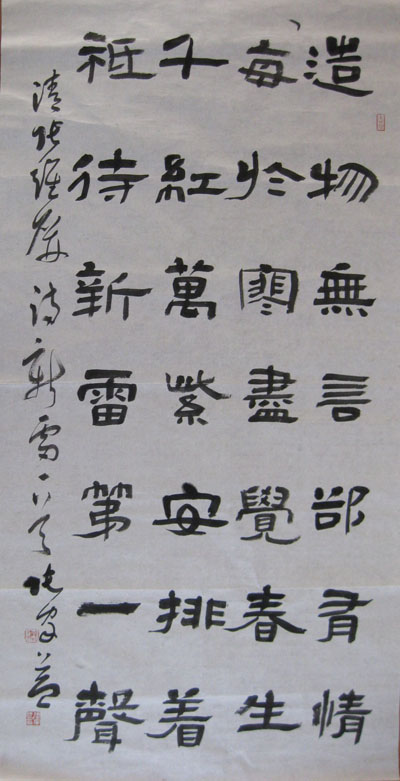 造物無言郤有情
每於寒盡覺春生
千紅萬紫安排着
祗待新雷第一聲
清张维屏诗新雷一首